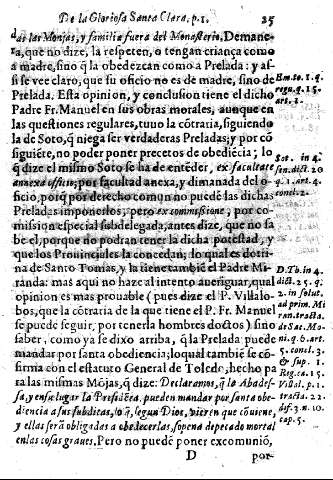 De la Gloriosa Santa Clara, p. 1. 25
das las Monjas, y familia fuera del Monasterio. Demane-
ra, que no dize, la respeten, o tengan criança como
a madre, sino q̃ la obedezcan como a Prelada: y as-
si se vee claro, que su oficio no es de madre, sino de
Prelada. Esta opinion, y conclusion tiene el dicho
Padre Fr. Manuel en sus obras morales, aunque en
las questiones regulares, tuuo la cõtraria, siguiendo
la de Soto, q̃ niega ser verdaderas Preladas; y por cõ
siguiẽte, no poder poner precetos de obediẽcia; lo
q̃ dize el mismo Soto se ha de entẽder, ex facultate
annexa officio; por facultad anexa, y dimanada del o-
ficio, porq̃ por derecho comun no puedẽ las dichas
Preladas imponerlos; pero ex commissione, por co-
mission especial subdelegada, antes dize, que no sa
be el, porque no podran tener la dicha potestad, y
que los Prouinciales la concedan; lo qual es dotri
na de Santo Tomas, y la tiene tambiẽ el Padre Mi-
randa: mas aqui no haze al intento aueriguar, qual
opinion es mas prouable (pues dize el P. Villalo-
bos, que la cõtraria de la que tiene el P. Fr. Manuel
se puede seguir, por tenerla hombres doctos) sino
saber, como ya se dixo arriba, q̃ la Prelada puede
mandar por santa obediencia; lo qual tambiẽ se cõ-
firma con el estatuto General de Toledo, hecho pa
ra las mismas Mõjas, q̃ dize: Declaramos, q̃ la Abades-
sa, y en su lugar la Presidẽta, pueden mandar por santa obe-
diencia a sus subditas, lo q̃, segun Dios, vieren que cõuiene,
y ellas serã obligadas a obedecerlas, sopena de pecado mortal
en las cosas graues. Pero no puedẽ poner excomuniõ,
D por-
Em. to. 1. q.
regu. q. 15.
art. 1.
Sot. in 4.
sen. dict. 20
q. 1. art. 4.
concl. 2.
D. Th. in 4.
dict. 25. q.
2. in solut.
ad prim. Mi
ran. tracta.
de Sac. Mo-
ni. q. 6. art.
5. concl. 3.
& sup. 1.
Reg. ca. 15.
Villal. p. 1.
tracta. 22.
dif. 3. n. 10.
cap. 5.